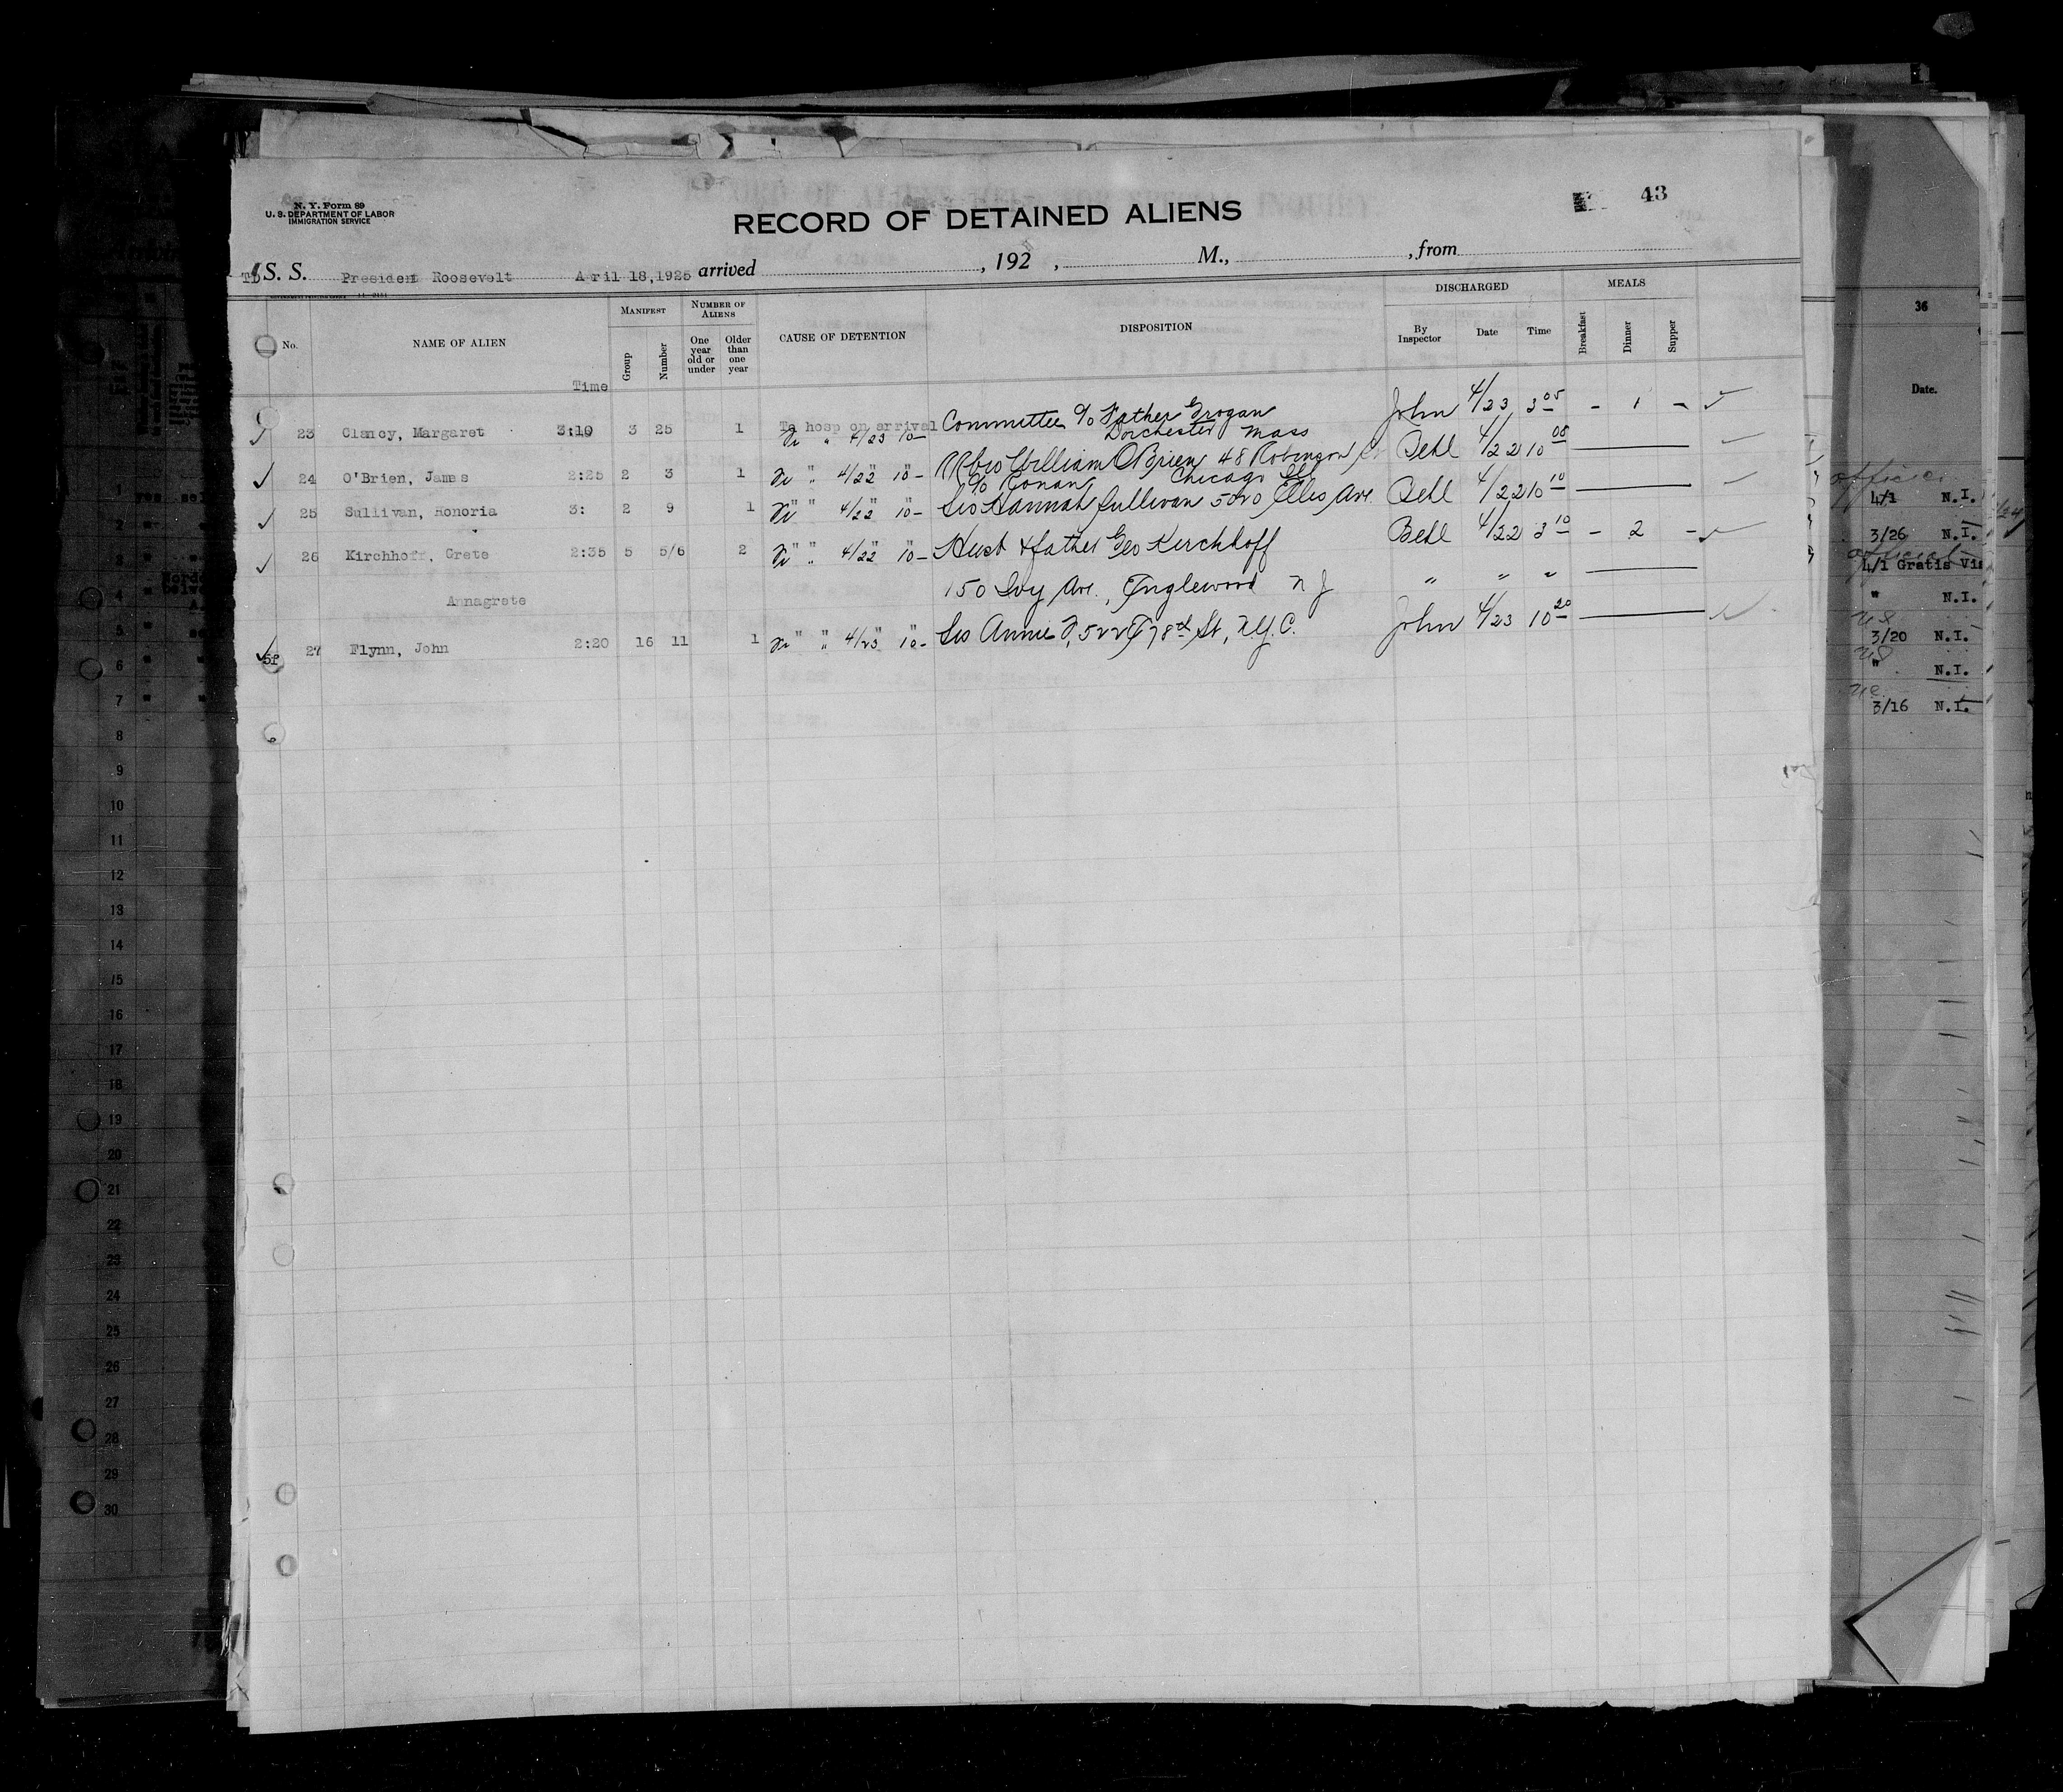 N. Y. Form 89
U. S. DEPARTMENT OF LABOR
IMMIGRATION SERVICE
43
RECORD OF DETAINED ALIENS
S. S. President Roosevelt April 18,1925 arrived , 192 , M., , from
No. NAME OF ALIEN Time MANIFEST Group Number NUMBER OF ALIENS One year old or under Older than one year CAUSE OF DETENTION DISPOSITION DISCHARGED By Inspector Date Time MEALS Breakfast Dinner Supper
23 Clancy, Margaret 3:10 3 25 1 To hosp on arrival 4/23 10- Committee c/o Father Grogan John 4/23 3 05 - 1 -
Dorchester Mass
24 O'Brien, James 2:25 2 3 1 " " 4/22 10- William O'Brien 48 Robinson Behl 4/22 10 05
c/o Ronan Chicago Ill
25 Sullivan, Honoria 3: 2 9 1 " " 4/22 10- Sis Hannah Sullivan 5020 Ellis Ave. Behl 4/22 10 10
26 Kirchhoff, Grete 2:35 5 5/6 2 " " 4/22 10- Husb & father Geo Kirchhoff Behl 4/22 3 10 - 2 -
Annagrete 150 Ivy Ave., Englewood N J " " "
27 Flynn, John 2:20 16 11 1 " " 4/23 10- Sis Annie F, 522 E 78th St, N.Y.C. John 4/23 10 20
36
Date.
4/1 N.I.
3/26 N.I.
4/1 Gratis
" N.I.
3/20 N.I.
" N.I.
3/16 N.I.
1
2
3
4
5
6
7
8
9
10
11
12
13
14
15
16
17
18
19
20
21
22
23
24
25
26
27
28
29
30